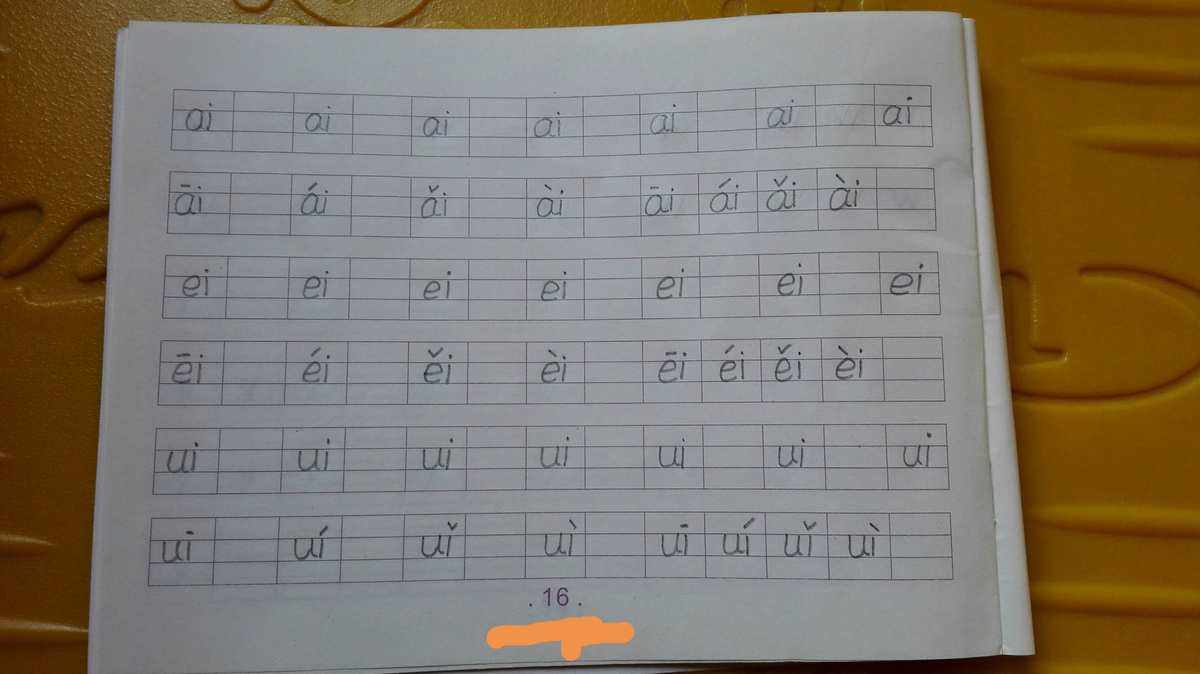 ai ai ai ai ai ai ai
āi ái ǎi ài āi ái ǎi ài
ei ei ei ei ei ei ei
ēi éi ěi èi ēi éi ěi èi
ui ui ui ui ui ui ui
uī uí uǐ uì uī uí uǐ uì
. 16 .